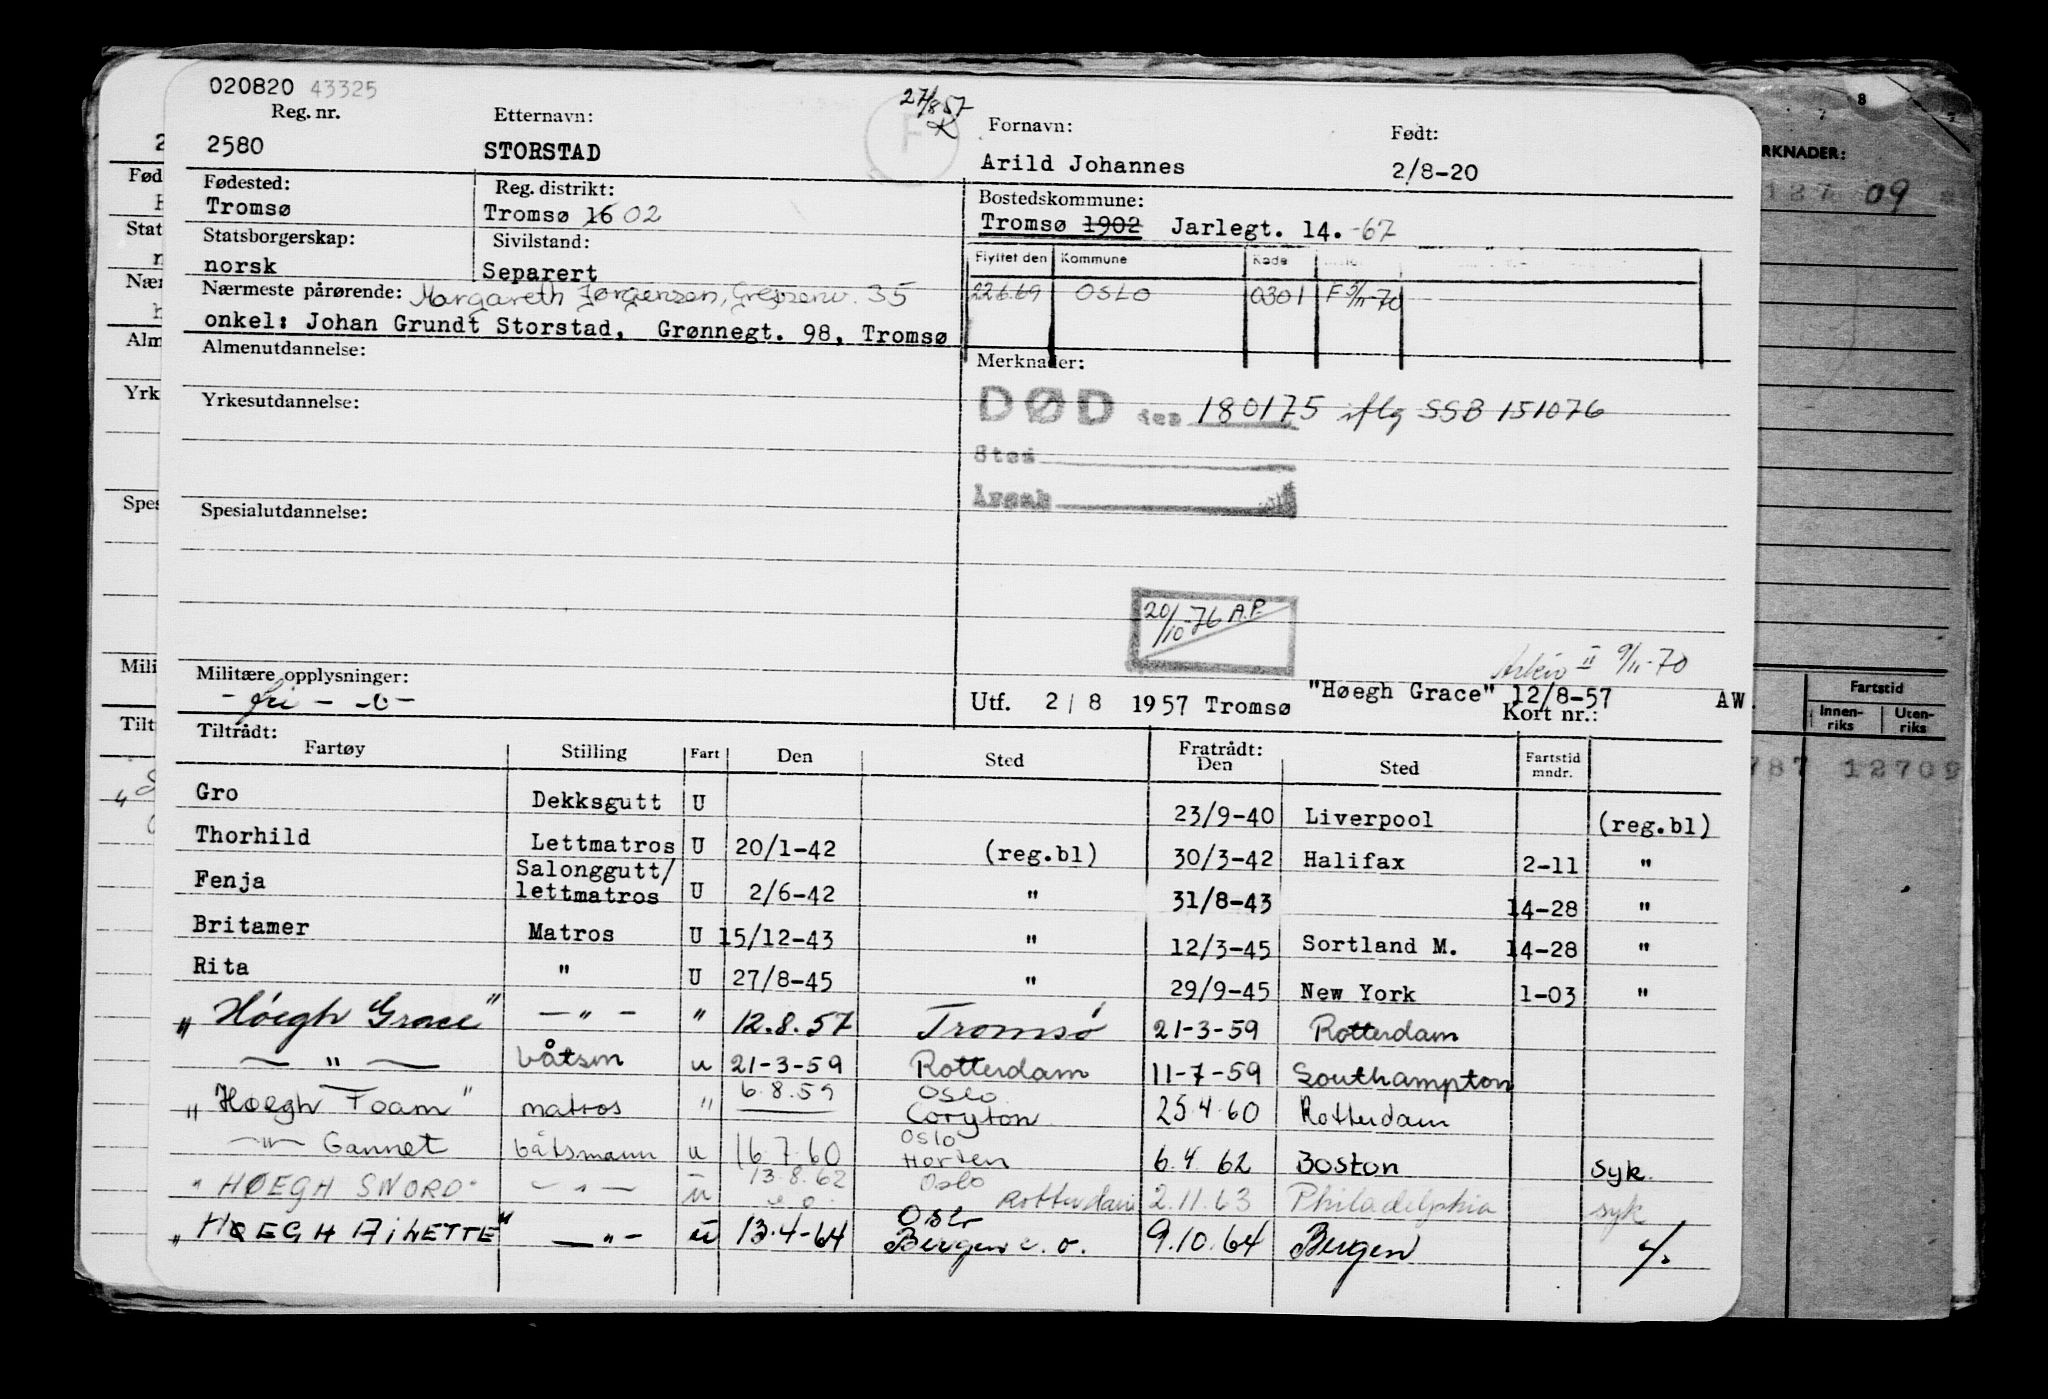 020820 43325
27/8 57
Reg. nr. Etternavn: Fornavn: Født:
2580 STORSTAD F Arild Johannes 2/8-20
Fødested: Reg. distrikt: Bostedskommune:
Tromsø Tromsø 16 02 Tromsø 1902 Jarlegt. 14. -67
Statsborgerskap: Sivilstand: Flyttet den Kommune Kode
norsk Separert 22.6.69 OSLO 0301 F 5/11-70
Nærmeste pårørende: Margareth Jørgensen, 35
onkel: Johan Grundt Storstad, Grønnegt. 98, Tromsø
Almenutdannelse: Merknader:
DØD den 180175 iflg SSB 151076
Yrkesutdannelse:
Sted
Årsak
Spesialutdannelse:
20/10-76 A.P.
Arkiv II 9/11-70
Militære opplysninger: "Høegh Grace" 12/8-57 AW.
- fri - Utf. 2/8 1957 Tromsø Kort nr.:
Tiltrådt: Fratrådt:
Fartøy Stilling Fart Den Sted Den Sted Fartstid mndr.
Gro Dekksgutt U 23/9-40 Liverpool (reg.bl)
Thorhild Lettmatros U 20/1-42 (reg.bl) 30/3-42 Halifax 2-11 "
Fenja Salonggutt/ lettmatros U 2/6-42 " 31/8-43 14-28 "
Britamer Matros U 15/12-43 " 12/3-45 Sortland M. 14-28 "
Rita " U 27/8-45 " 29/9-45 New York 1-03 "
"Høegh Grace" - " - " 12.8.57 Tromsø 21-3-59 Rotterdam
- " - båtsm u 21-3-59 Rotterdam 11-7-59 Southampton
"Høegh Foam" matros " 6.8.59 Oslo Coryton 25.4.60 Rotterdam
- " - Gannet båtsmann u 16.7.60 Oslo Horten 6.4.62 Boston syk.
"HØEGH SWORD" - " - u 13.8.62 Oslo Rotterdam 2.11.63 Philadelphia syk
"HØEGH AILETTE" - " - u 13.4-64 Oslo Bergen e.o. 9.10.64 Bergen
RKNADER:
09
Fartstid
Innen-riks Uten-riks
787 12709